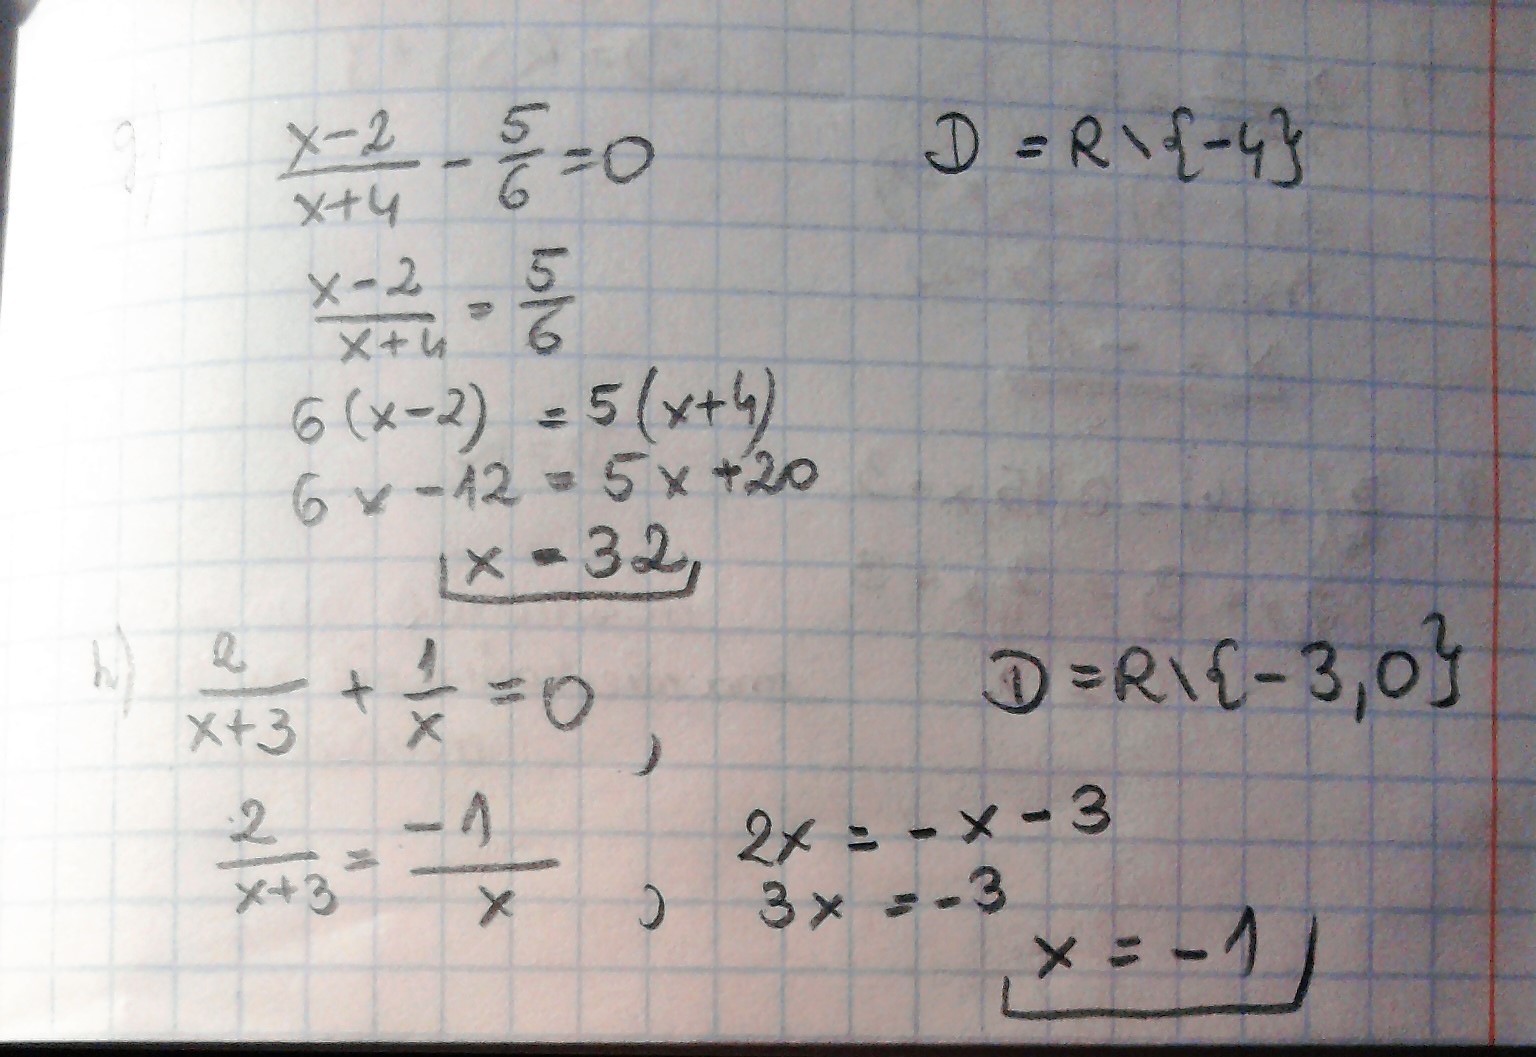 g) (x-2)/(x+4) - 5/6 = 0 D = R \ {-4}
(x-2)/(x+4) = 5/6
6(x-2) = 5(x+4)
6x - 12 = 5x + 20
x = 32
h) 2/(x+3) + 1/x = 0 , D = R \ {-3, 0}
2/(x+3) = -1/x , 2x = -x - 3
3x = -3
x = -1